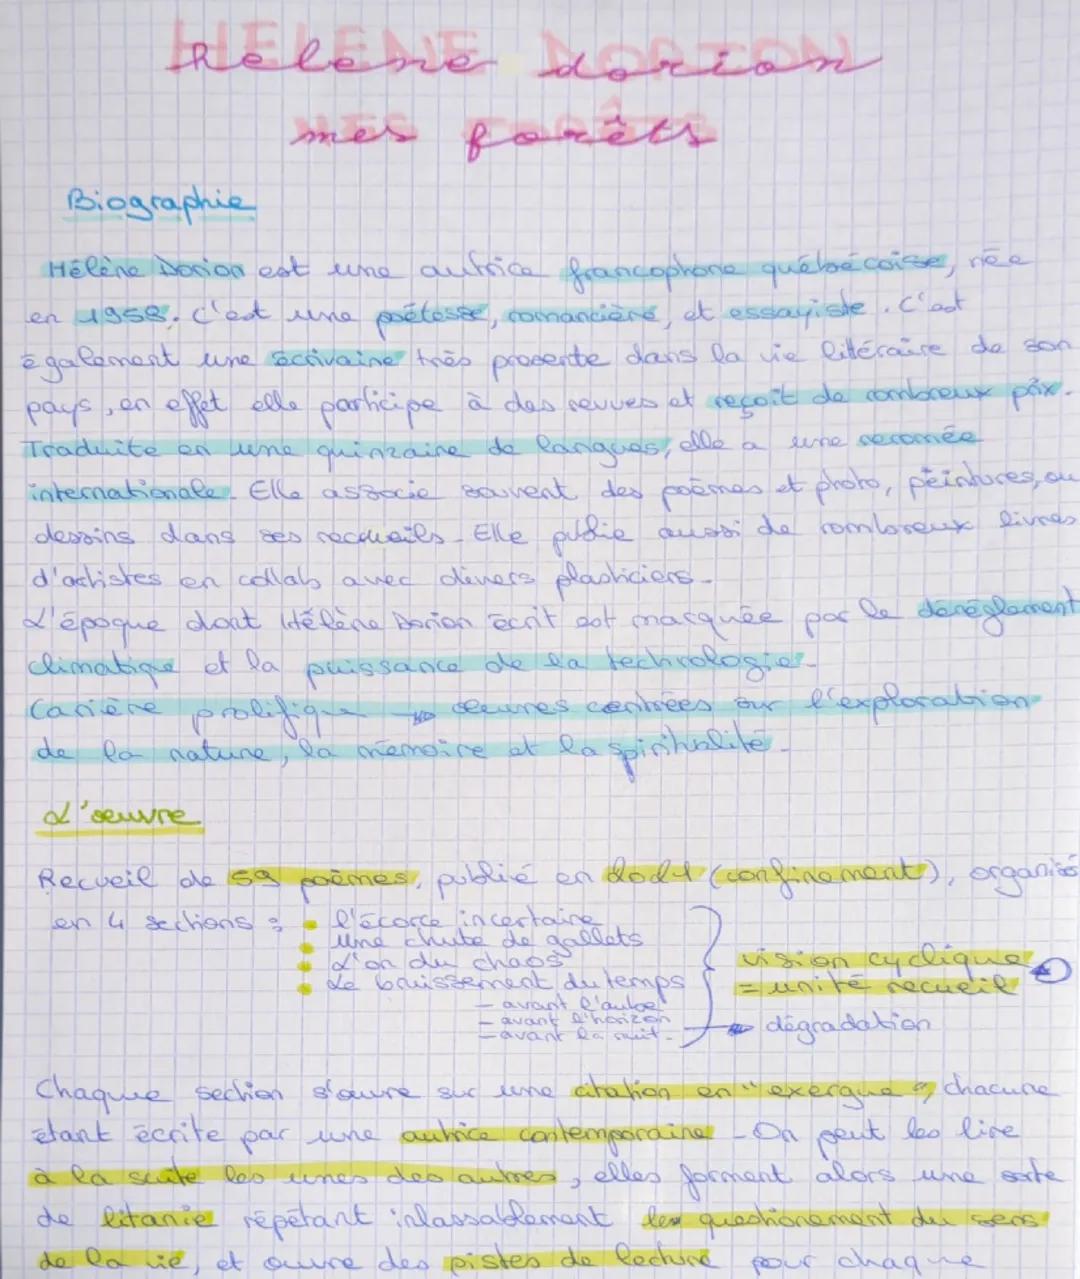 HELENE DORION
Hélène dorion
MES FORÊTS
mes forêts
Biographie
Hélène Dorion est une autrice francophone québécoise, née
en 1958. C'est une poétesse, romancière, et essayiste. C'est
également une écrivaine très présente dans la vie litéraire de son
pays, en effet elle participe à des revues et reçoit de nombreux prix.
Traduite en une quinzaine de langues, elle a une renomée
internationale. Elle associe souvent des poèmes et photo, peintures, ou
dessins dans ses recueils. Elle publie aussi de nombreux livres
d'artistes en collab avec divers plasticiens.
L'époque dont Hélène Dorion écrit est marquée par le déréglement
climatique et la puissance de la technologie.
Carière prolifique → œuvres centrées sur l'exploration
de la nature, la mémoire et la spiritualité.
L'œuvre
Recueil de 59 poèmes, publié en 2021 (confinement), organisé
en 4 sections :
• l'écorce incertaine
• une chute de gallets
• L'on du chaos
• Le bruissement du temps
– avant l'aube
– avant l'horizon
– avant la nuit.
vision cyclique
= unité recueil
→ dégradation
Chaque section s'ouvre sur une citation en "exergue", chacune
étant écrite par une autrice contemporaine. On peut les lire
à la suite les unes des autres, elles forment alors une sorte
de litanie répétant inlassablement les questionement du sens
de la vie, et ouvre des pistes de lecture pour chaque